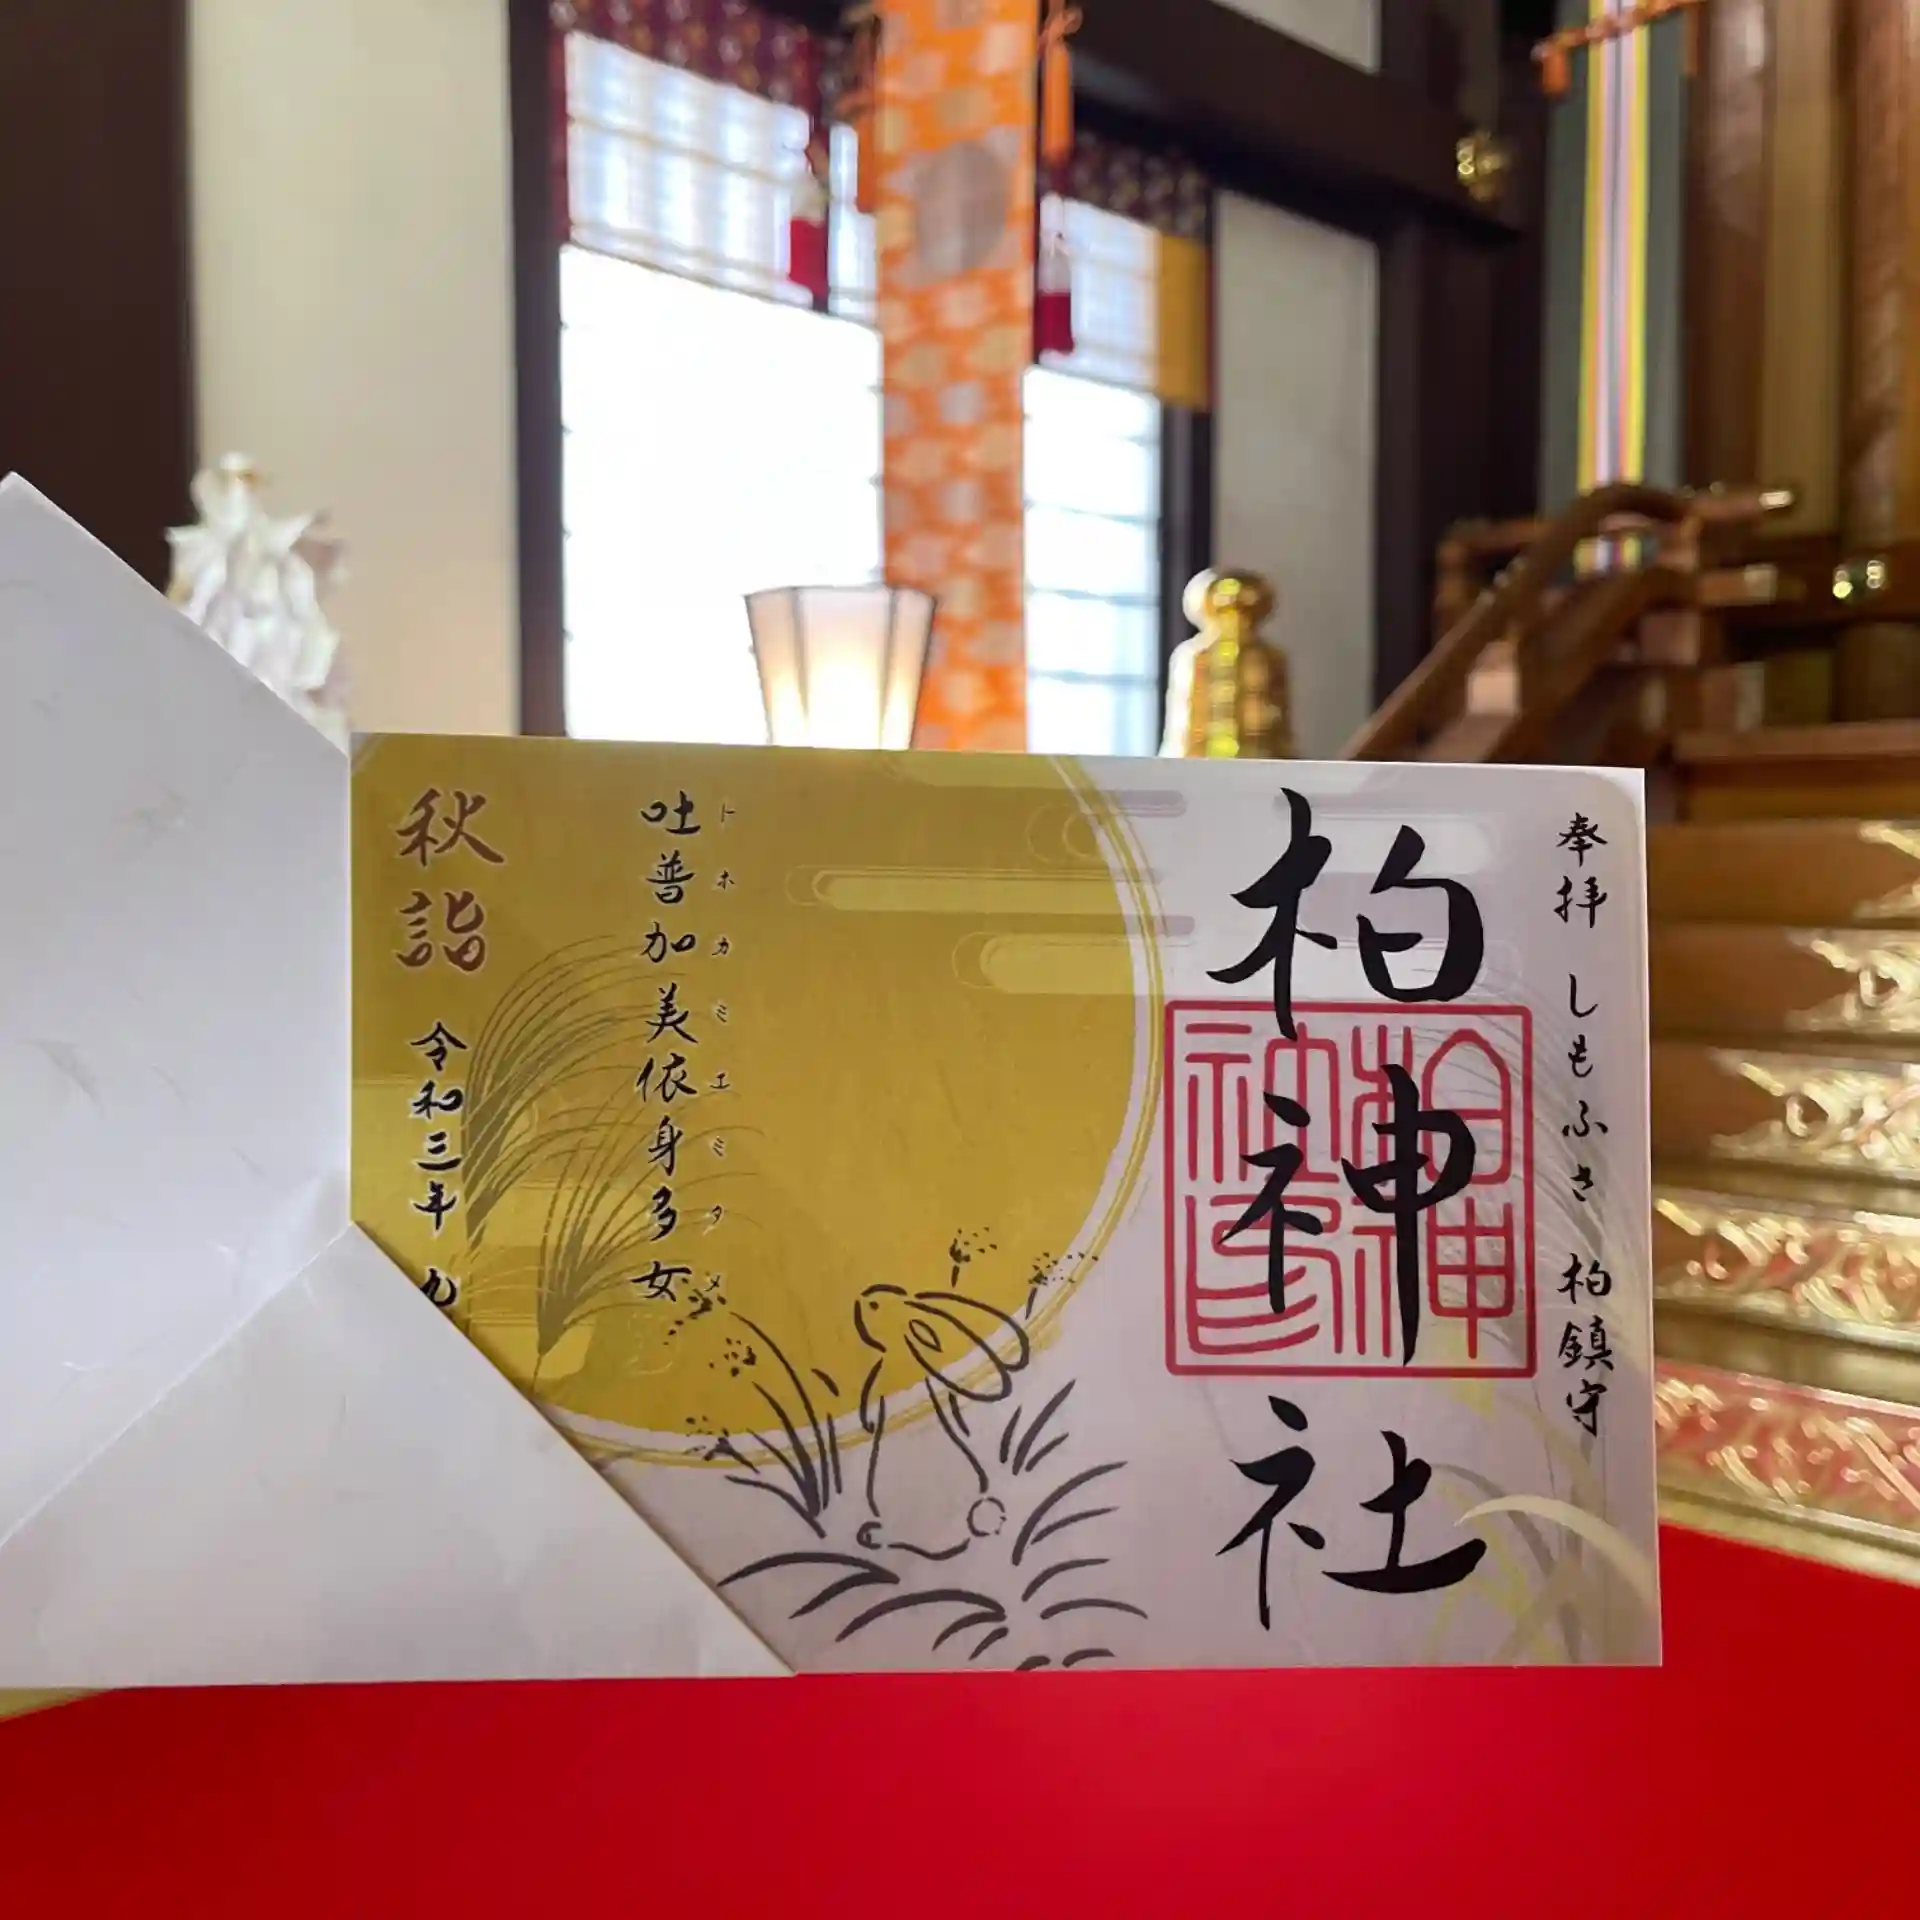 奉拝 しもふさ 柏鎮守
柏神社
柏神社印
トホカミエミタメ
吐普加美依身多女
秋詣
令和三年 九